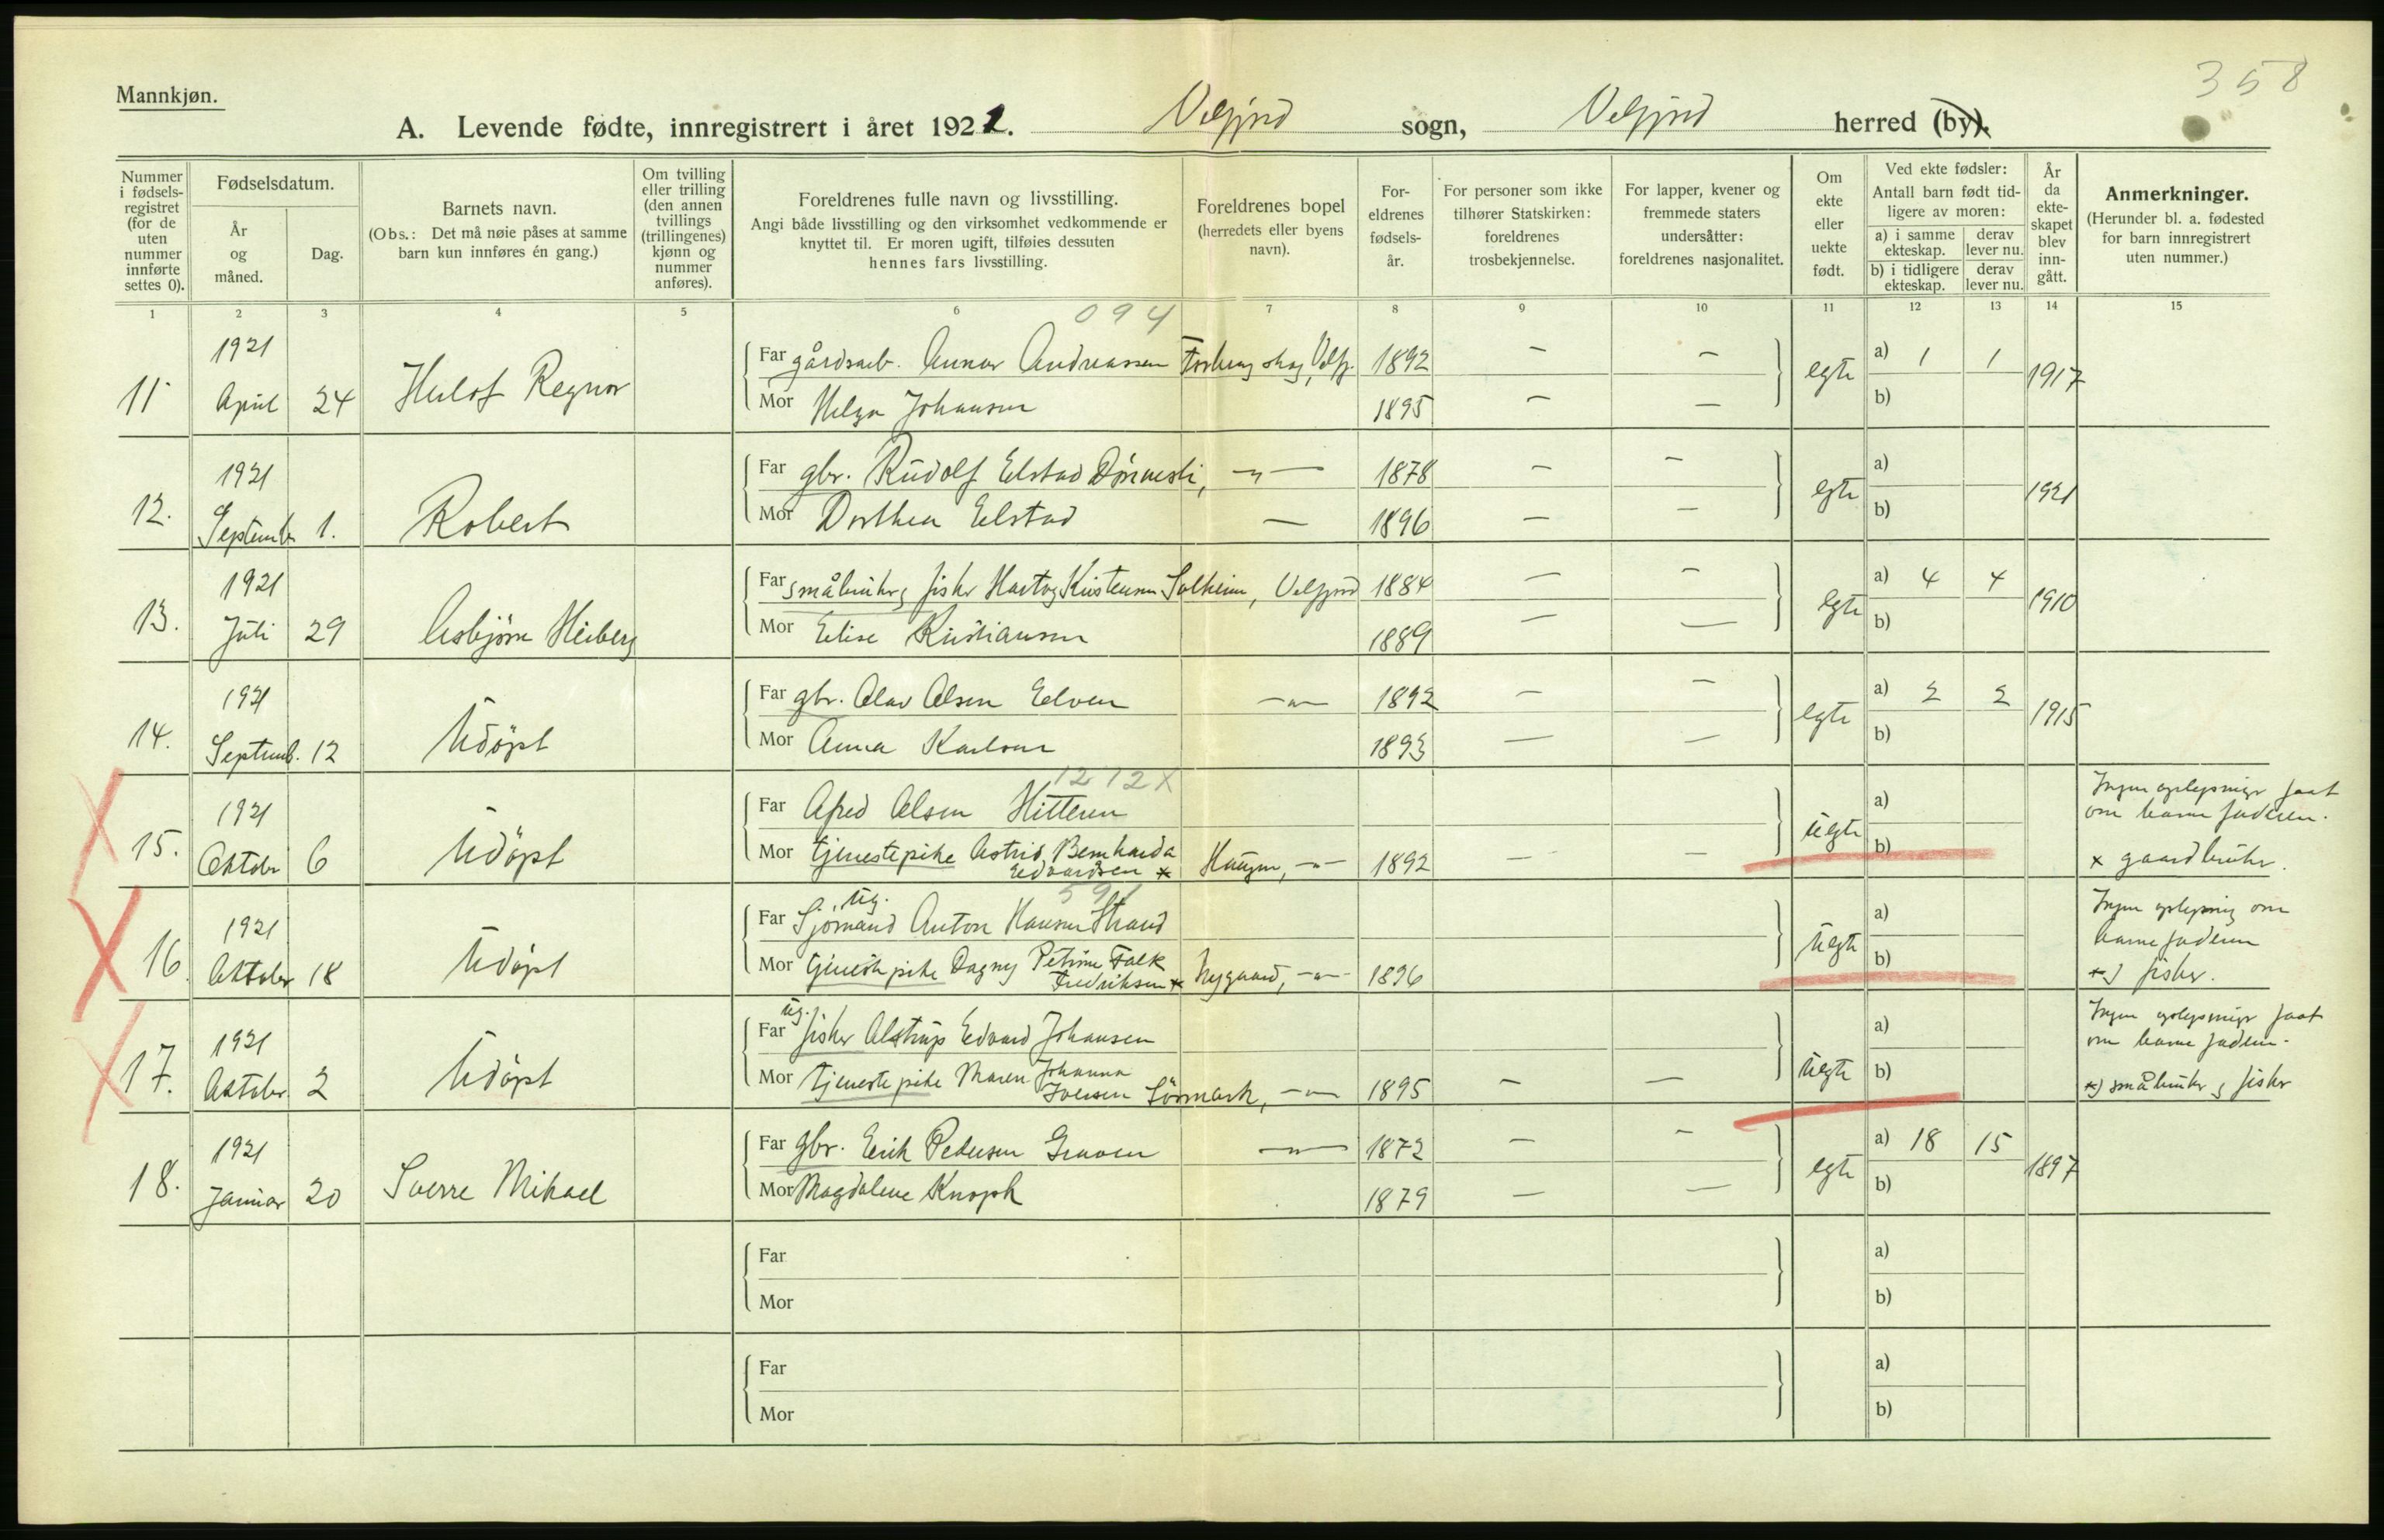 358
Mannkjøn.
A. Levende fødte, innregistrert i året 1921. Velfjord sogn, Velfjord herred (by).
Nummer i fødsels-registret (for de uten nummer innførte settes 0).
Fødselsdatum.
År og måned.
Dag.
Barnets navn.
(Obs.: Det må nøie påses at samme barn kun innføres én gang.)
Om tvilling eller trilling (den annen tvillings (trillingenes) kjønn og nummer anføres).
Foreldrenes fulle navn og livsstilling.
Angi både livsstilling og den virksomhet vedkommende er knyttet til. Er moren ugift, tilføies dessuten hennes fars livsstilling.
Foreldrenes bopel (herredets eller byens navn).
For-eldrenes fødsels-år.
For personer som ikke tilhører Statskirken: foreldrenes trosbekjennelse.
For lapper, kvener og fremmede staters undersåtter: foreldrenes nasjonalitet.
Om ekte eller uekte født.
Ved ekte fødsler:
Antall barn født tid-ligere av moren:
a) i samme ekteskap.
derav lever nu.
b) i tidligere ekteskap.
derav lever nu.
År da ekte-skapet blev inn-gått.
Anmerkninger.
(Herunder bl. a. fødested for barn innregistrert uten nummer.)
1 2 3 4 5 6 7 8 9 10 11 12 13 14 15
094
11 1921 April 24 Herlof Regnor
Far gårdsarb. Gunnar Andreassen 1892 – –
Mor Helga Johansen 1895 – –
egte a) 1 1 b) 1917
12. 1921 Septemb. 1. Robert
Far gbr. Rudolf Elstad —„— 1878 – –
Mor Dorthea Elstad — 1896 – –
egte a) b) 1921
13. 1921 Juli 29 Asbjørn Heiberg
Far småbruker, fisker Hartvig Kristensen Solheim, Velfjord 1884 – –
Mor Elise Kristiansen 1889 – –
egte a) 4 4 b) 1910
14. 1921 Septemb. 12 Udöpt
Far gbr. Olav Olsen Elven —„— 1892 – –
Mor Anna Karlsen 1893 – –
egte a) 2 2 b) 1915
1212X
15. 1921 Oktober 6 Udöpt
Far Alfred Olsen Hitteren
Mor tjenestepike Astrid Bernharda Edvardsen x Haugen, —„— 1892 – –
uegte a) b)
Ingen oplysninger faat om barnefaderen.
x gaardbruker.
16. 1921 Oktober 18 Udöpt
Far ug. Sjömand Anton Hansen Strand
Mor tjenestepike Dagny Petrine Falk Fredriksen x Nygaard, —„— 1896
uegte a) b)
Ingen oplysning om barnefaderen
x) fisker.
17. 1921 Oktober 2 Udöpt
Far ug. fisker Alstrup Edvard Johansen
Mor tjenestepike Maren Johanna Iversen Sörmark, —„— 1895 – –
uegte a) b)
Ingen oplysninger faat om barnefaderen.
x) småbruker, fisker
18. 1921 Januar 20 Sverre Mikael
Far gbr. Erik Pedersen —„— 1872 – –
Mor Magdalene Knoph 1879 – –
egte a) 18 15 b) 1897
Far
Mor
a)
b)
Far
Mor
a)
b)